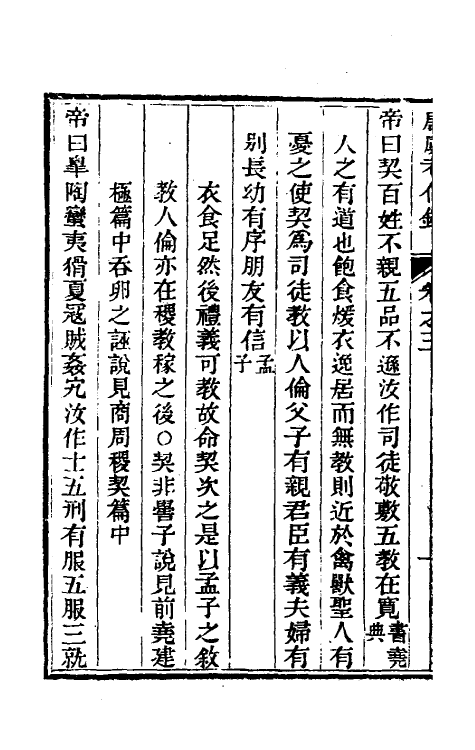 帝曰契百姓不親五品不遜汝作司徒敬敷五教在寬書堯典
人之有道也飽食煖衣逸居而無教則近於禽獸聖人有
憂之使契為司徒教以人倫父子有親君臣有義夫婦有
別長幼有序朋友有信孟子
衣食足然後禮義可教故命契次之是以孟子之敘
教人倫亦在稷教稼之後○契非嚳子說見前堯建
極篇中吞卵之誣說見商周稷契篇中
帝曰皋陶蠻夷猾夏寇賊姦宄汝作士五刑有服五服三就